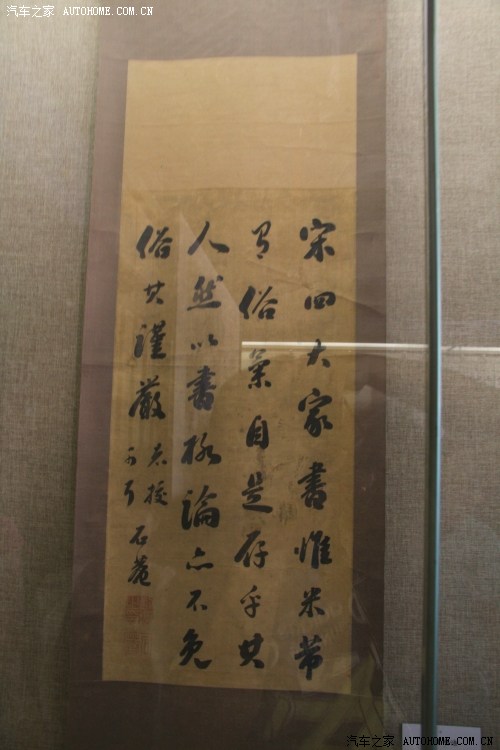 汽车之家 AUTOHOME.COM.CN
宋四大家書惟米芾
有俗氣自是存乎其
人然以書論亦不免
俗其謹嚴
石菴
汽车之家 AUTOHOME.COM.CN